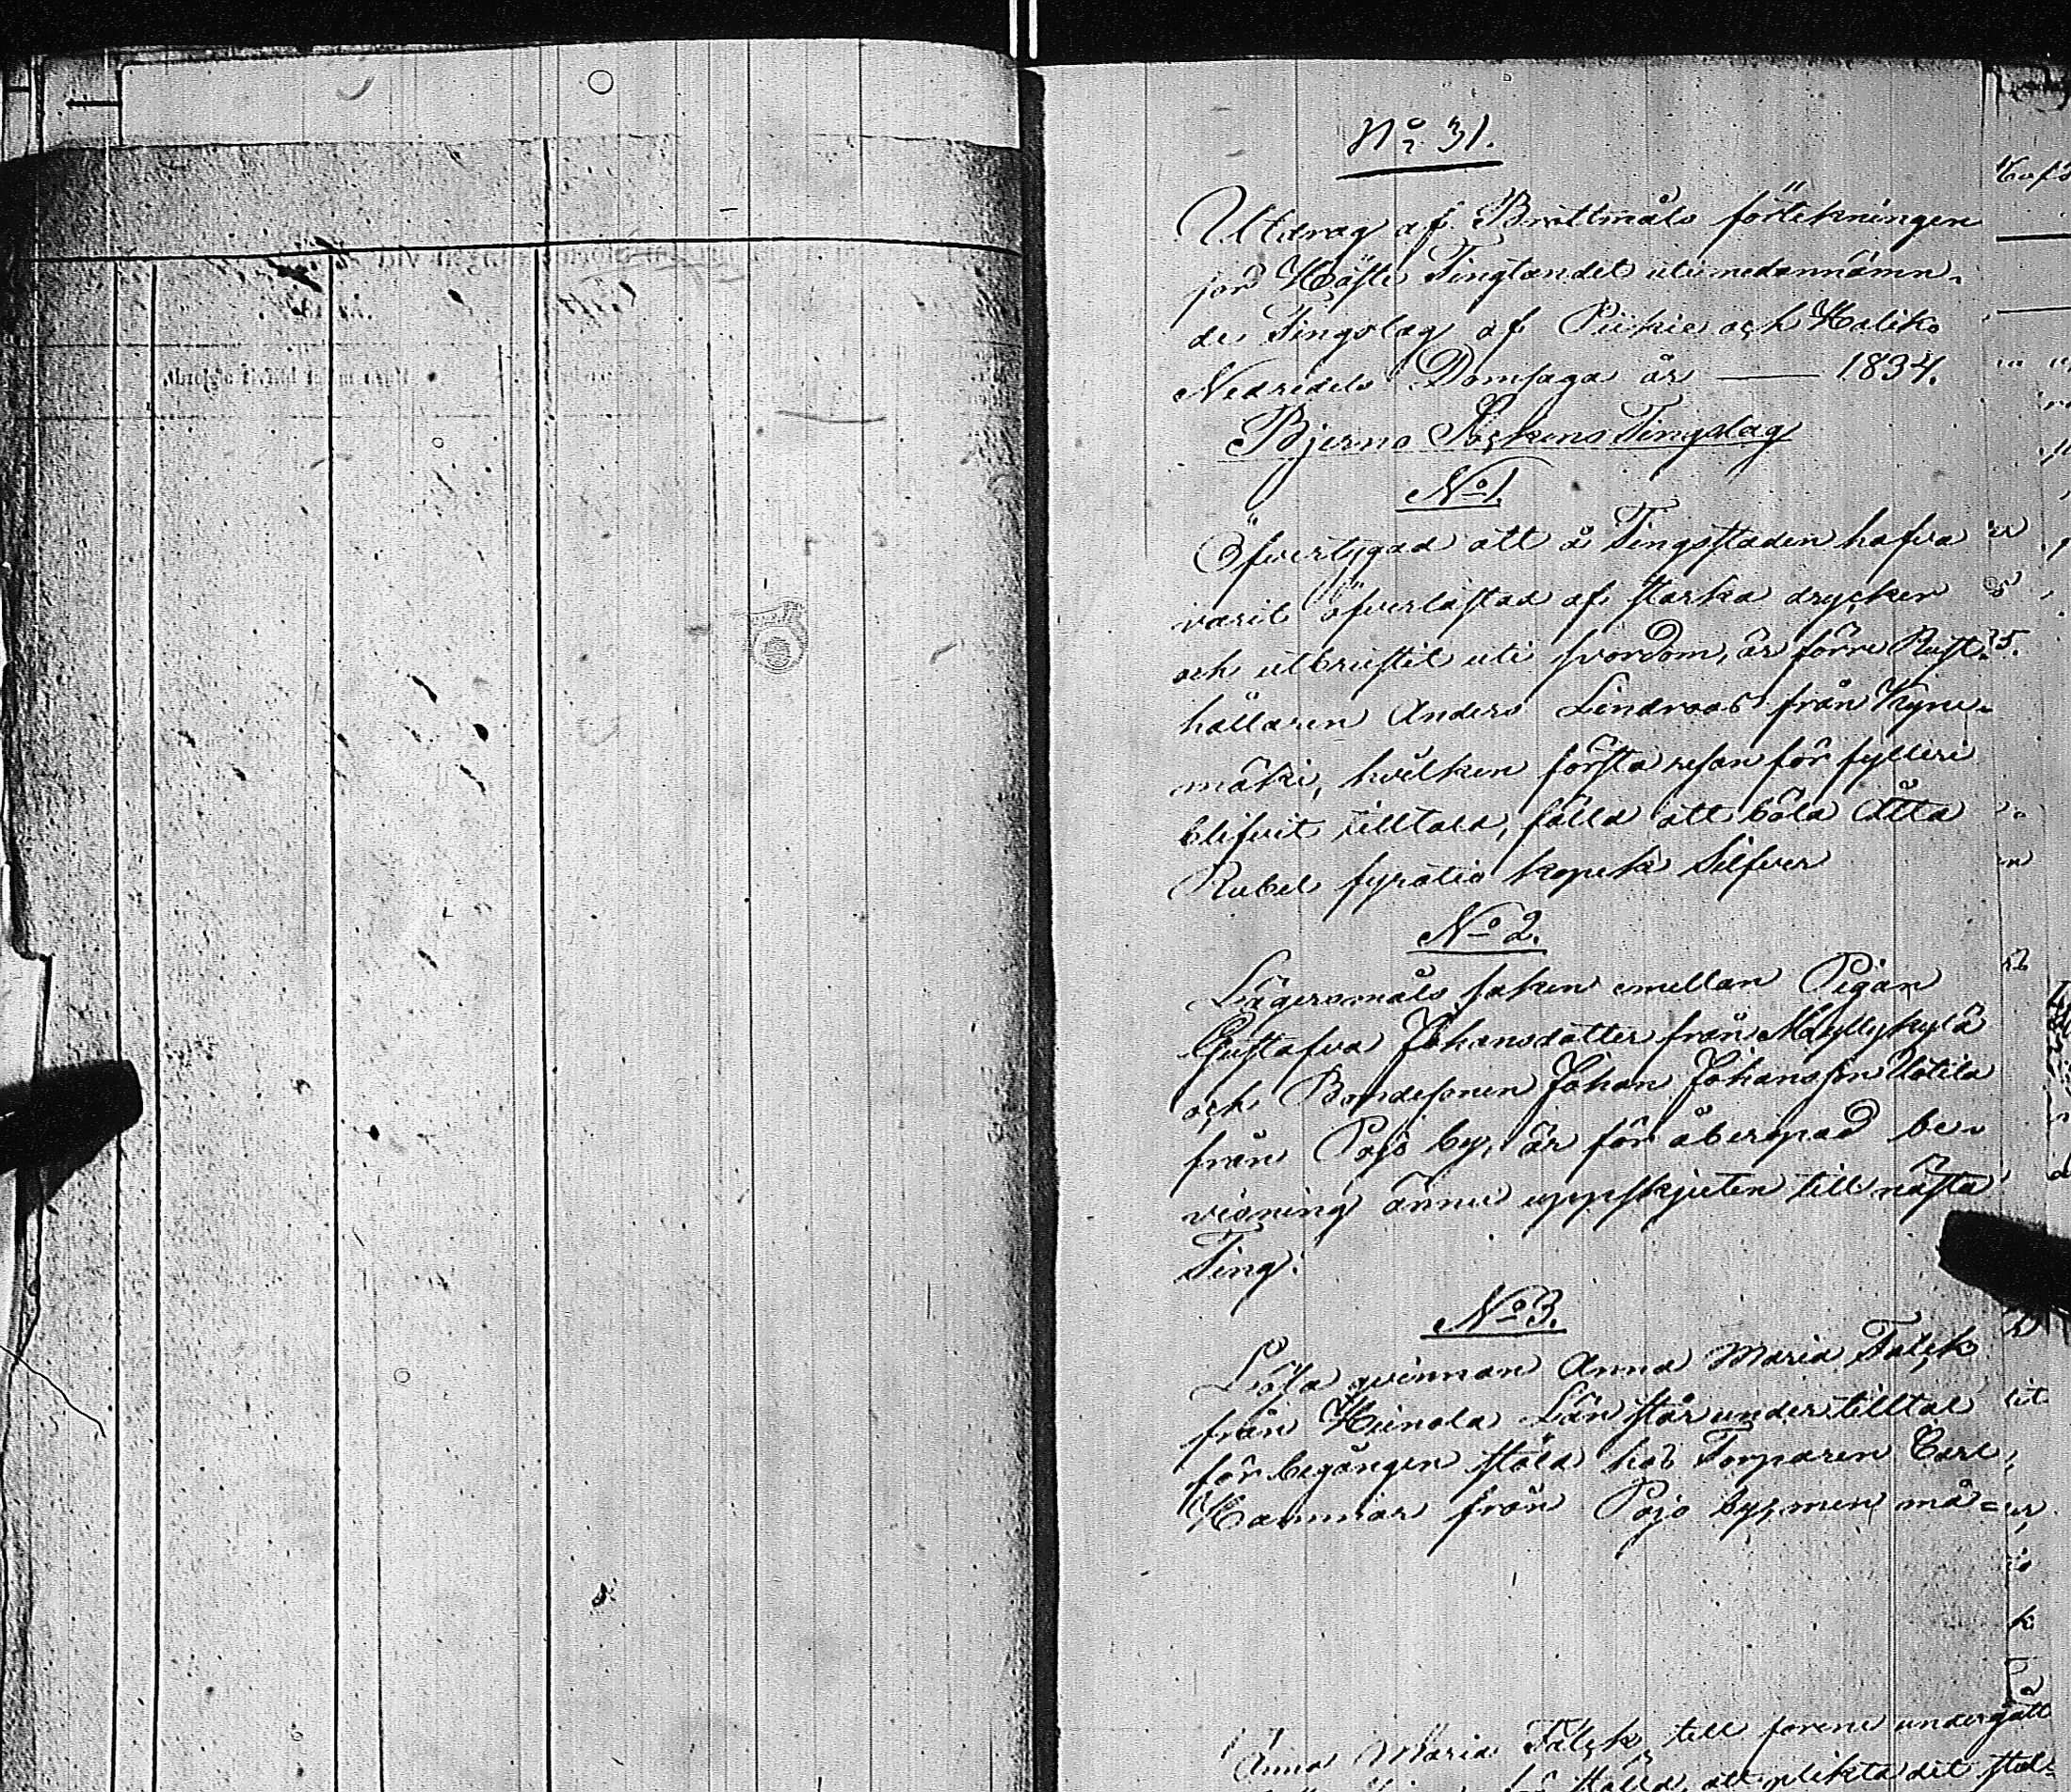 No 31.
Utdrag af Brottmåls förtekningen
för Höste Tingtandet uti nedannämn-
de Tingslag af Piikie och Haliko
Nedredels Domsaga år — 1834.
Bjerno Sockens Tingslag
No 1.
Öfvertygad att å Tingsstaden hafva
varit öfverlastad af starka drycker
och utbrustit uti svordom, är förre Rust-
hållaren Anders Lindroos från Kyrü-
mäki, hvilken första resan för fylleri
blifvit tilltald, fälld att böta Åtta
Rubel fyratio kopek Silfver
No 2.
Lägersmåls saken emellan Pigan
Gustafva Johansdotter från Myllykylä
och Bondesonen Johan Johansson Uotila
från Pojo by, är för åberopad be-
visning ännu uppskjuten till nästa
Ting.
No 3.
Lösa qvinnan Anna Maria Falck
från Heinola Län står under tilltal
för begången stöld hos Torparen Carl
Hammar från Pojo by, men må=
Anna Maria Falck till förene undergått
att plikta dit stöl=